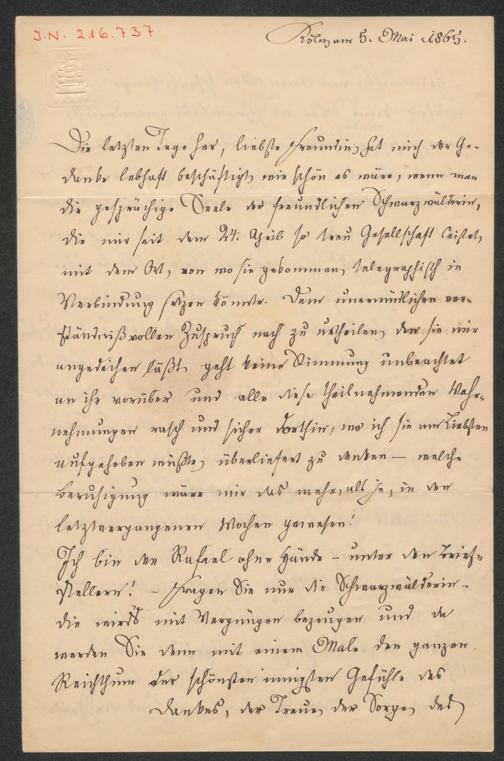 J.N. 216.737
Köln am 5. Mai 1865.
Die letzten Tage her, liebste Freundin, hat mich der Ge-
danke lebhaft beschäftigt, wie schön es wäre, wenn man
die gesprächige Seele der freundlichen Schwarzwälderin,
die mir seit dem 24. April so treu Gesellschaft leistet,
mit dem Ort, von wo sie gekommen, telegraphisch in
Verbindung setzen könnte. Dem unermüdlichen ver-
ständnißvollen Zuspruch nach zu urtheilen, den sie mir
angedeihen läßt, geht keine Stimmung unbeachtet
an ihr vorüber und alle diese theilnehmenden Wahr-
nehmungen rasch und sicher dorthin, wo ich sie am Liebsten
aufgehoben wüßte, überliefert zu denken – welche
Beruhigung wäre mir das mehr als je, in den
letztvergangenen Wochen gewesen!
Ich bin der Rafael ohne Hände – unter den Brief-
stellern! – Fragen Sie nur die Schwarzwälderin –
die wird's mit Vergnügen bezeugen und da
werden Sie denn mit einem Male den ganzen
Reichthum der schönsten innigsten Gefühle des
Dankes, der Treue, der Sorge, des